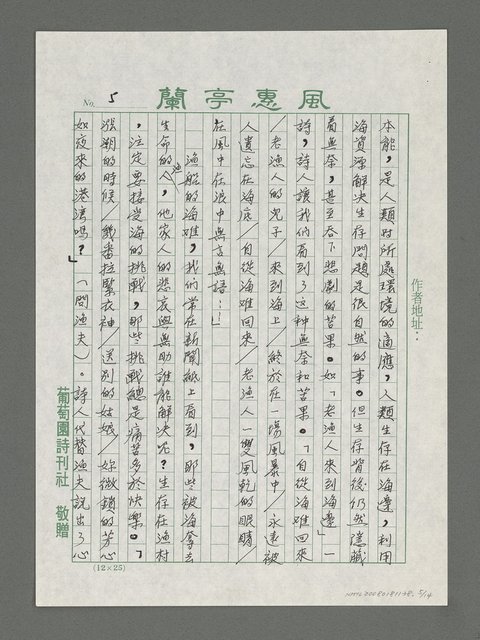 風惠亭蘭
No. 5
作者地址：
本能，是人類對所處環境的適應，人類生存在海邊，利用
海資源解決生存問題是很自然的事。但生存背後仍然隱藏
着無奈，甚至吞下悲劇的苦果。如「老漁人來到海邊」一
詩，詩人讓我們看到了這种無奈和苦果。「自從海難回來
／老漁人的兒子／來到海上／終於在一場風暴中／永遠被
人遺忘在海底／自從海難回來／老漁人一雙風乾的眼睛／
在風中在浪中無言無語……」
漁船的海難，我們常在新聞紙上看到，那些被海奪去
生命的漁人，他家人的悲哀與無助誰能解決呢？生存在漁村
，注定要接受海的挑戰，那些挑戰總是痛苦多於快樂。「
漲潮的時候／幾番拉緊衣袖／送別的姑娘／妳微鎖的芳心
如夜來的港灣嗎？」（「問漁夫」）。詩人代替漁夫說出了心
葡萄園詩刊社 敬贈
(12×25)
5/14